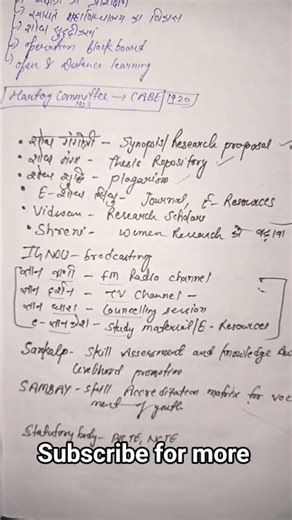 → स्वायत्त महाविद्यालय का विकास
→ शोध सुदृढ़ीकरण
→ operation blackboard
→ open & distance learning
Hartog Committee → CABE 1920
1929
• शोध गंगोत्री - Synopsis/Research proposal
• शोध गंगा - Thesis Repository
• शोध शुद्धि - Plagarism
• E-शोध सिंधु - Journal, E-Resources
• Vidwan - Research Scholars
• Shreni - women Research को बढ़ावा
IGNOU - Brodcasting
ज्ञान वाणी - FM Radio channel
ज्ञान दर्शन - TV Channel -
ज्ञान धारा - Councelling session
e-ज्ञानकोश - Study material/E-Resources
Sankalp - Skill Assessment and knowledge
livelihood promotion
SAMBAY - Skill Accreditation matrix for voc
ment of youth
Statutory body - AICTE, NCTE
Subscribe for more